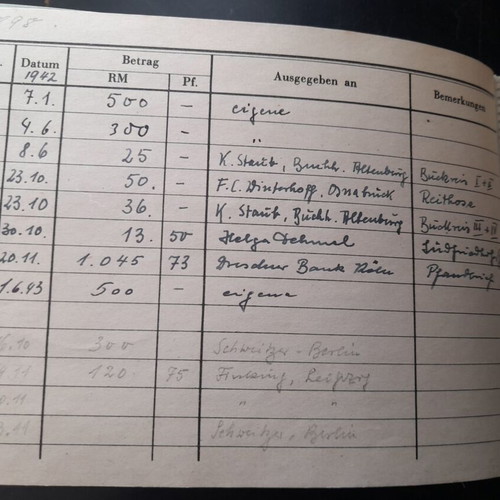 Datum Betrag Ausgegeben an Bemerkungen
1942 RM Pf.
7.1. 500 – eigene
4.6. 300 – "
8.6 25 – K. Staub, Buchh. Altenburg
23.10. 50. – F.C. Osnabrück Reithose
23.10 36. – K. Staub, Buchh. Altenburg
30.10. 13. 50 Helga Dehmel
20.11. 1.045 73 Dresdner Bank Köln Pfandbrief
1.6.43 500 – eigene
6.10 300 Schweitzer - Berlin
120. 75 Leipzig
" "
Schweitzer, Berlin